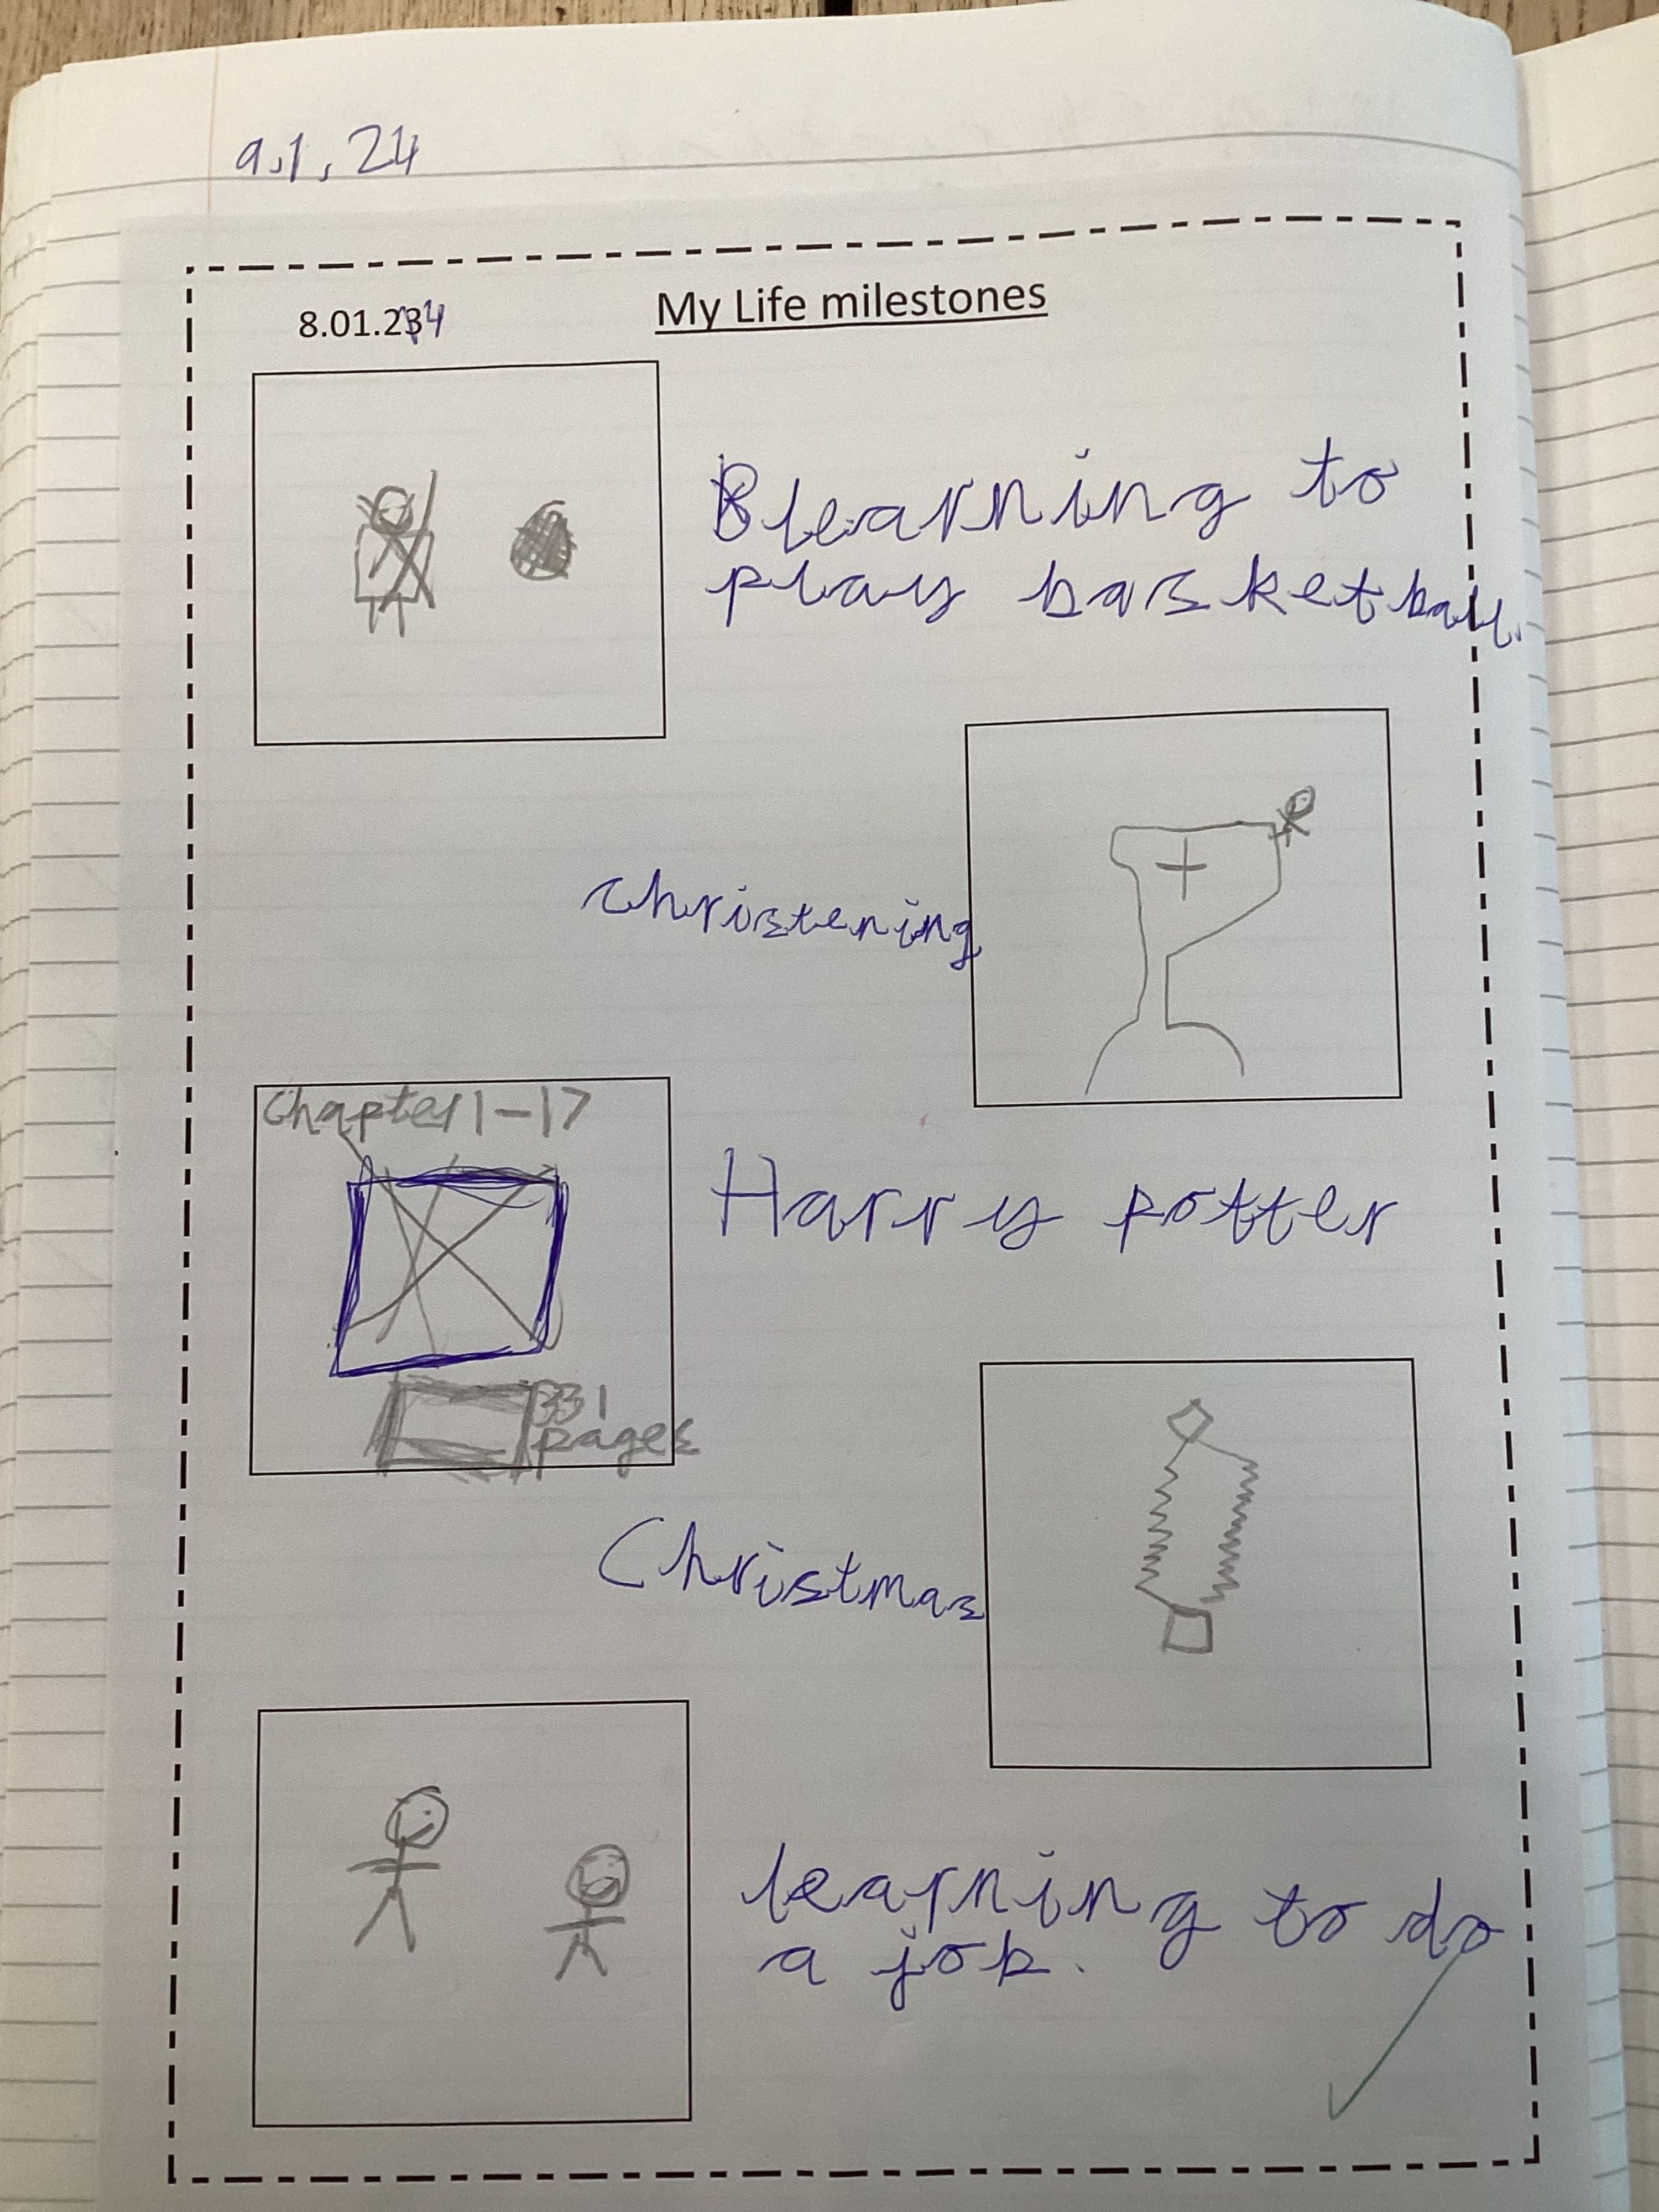 9.1.24
8.01.24
My Life milestones
learning to
play basketball.
christening
Chapter 1-17
Harry potter
331
pages
Christmas
learning to do
a job.